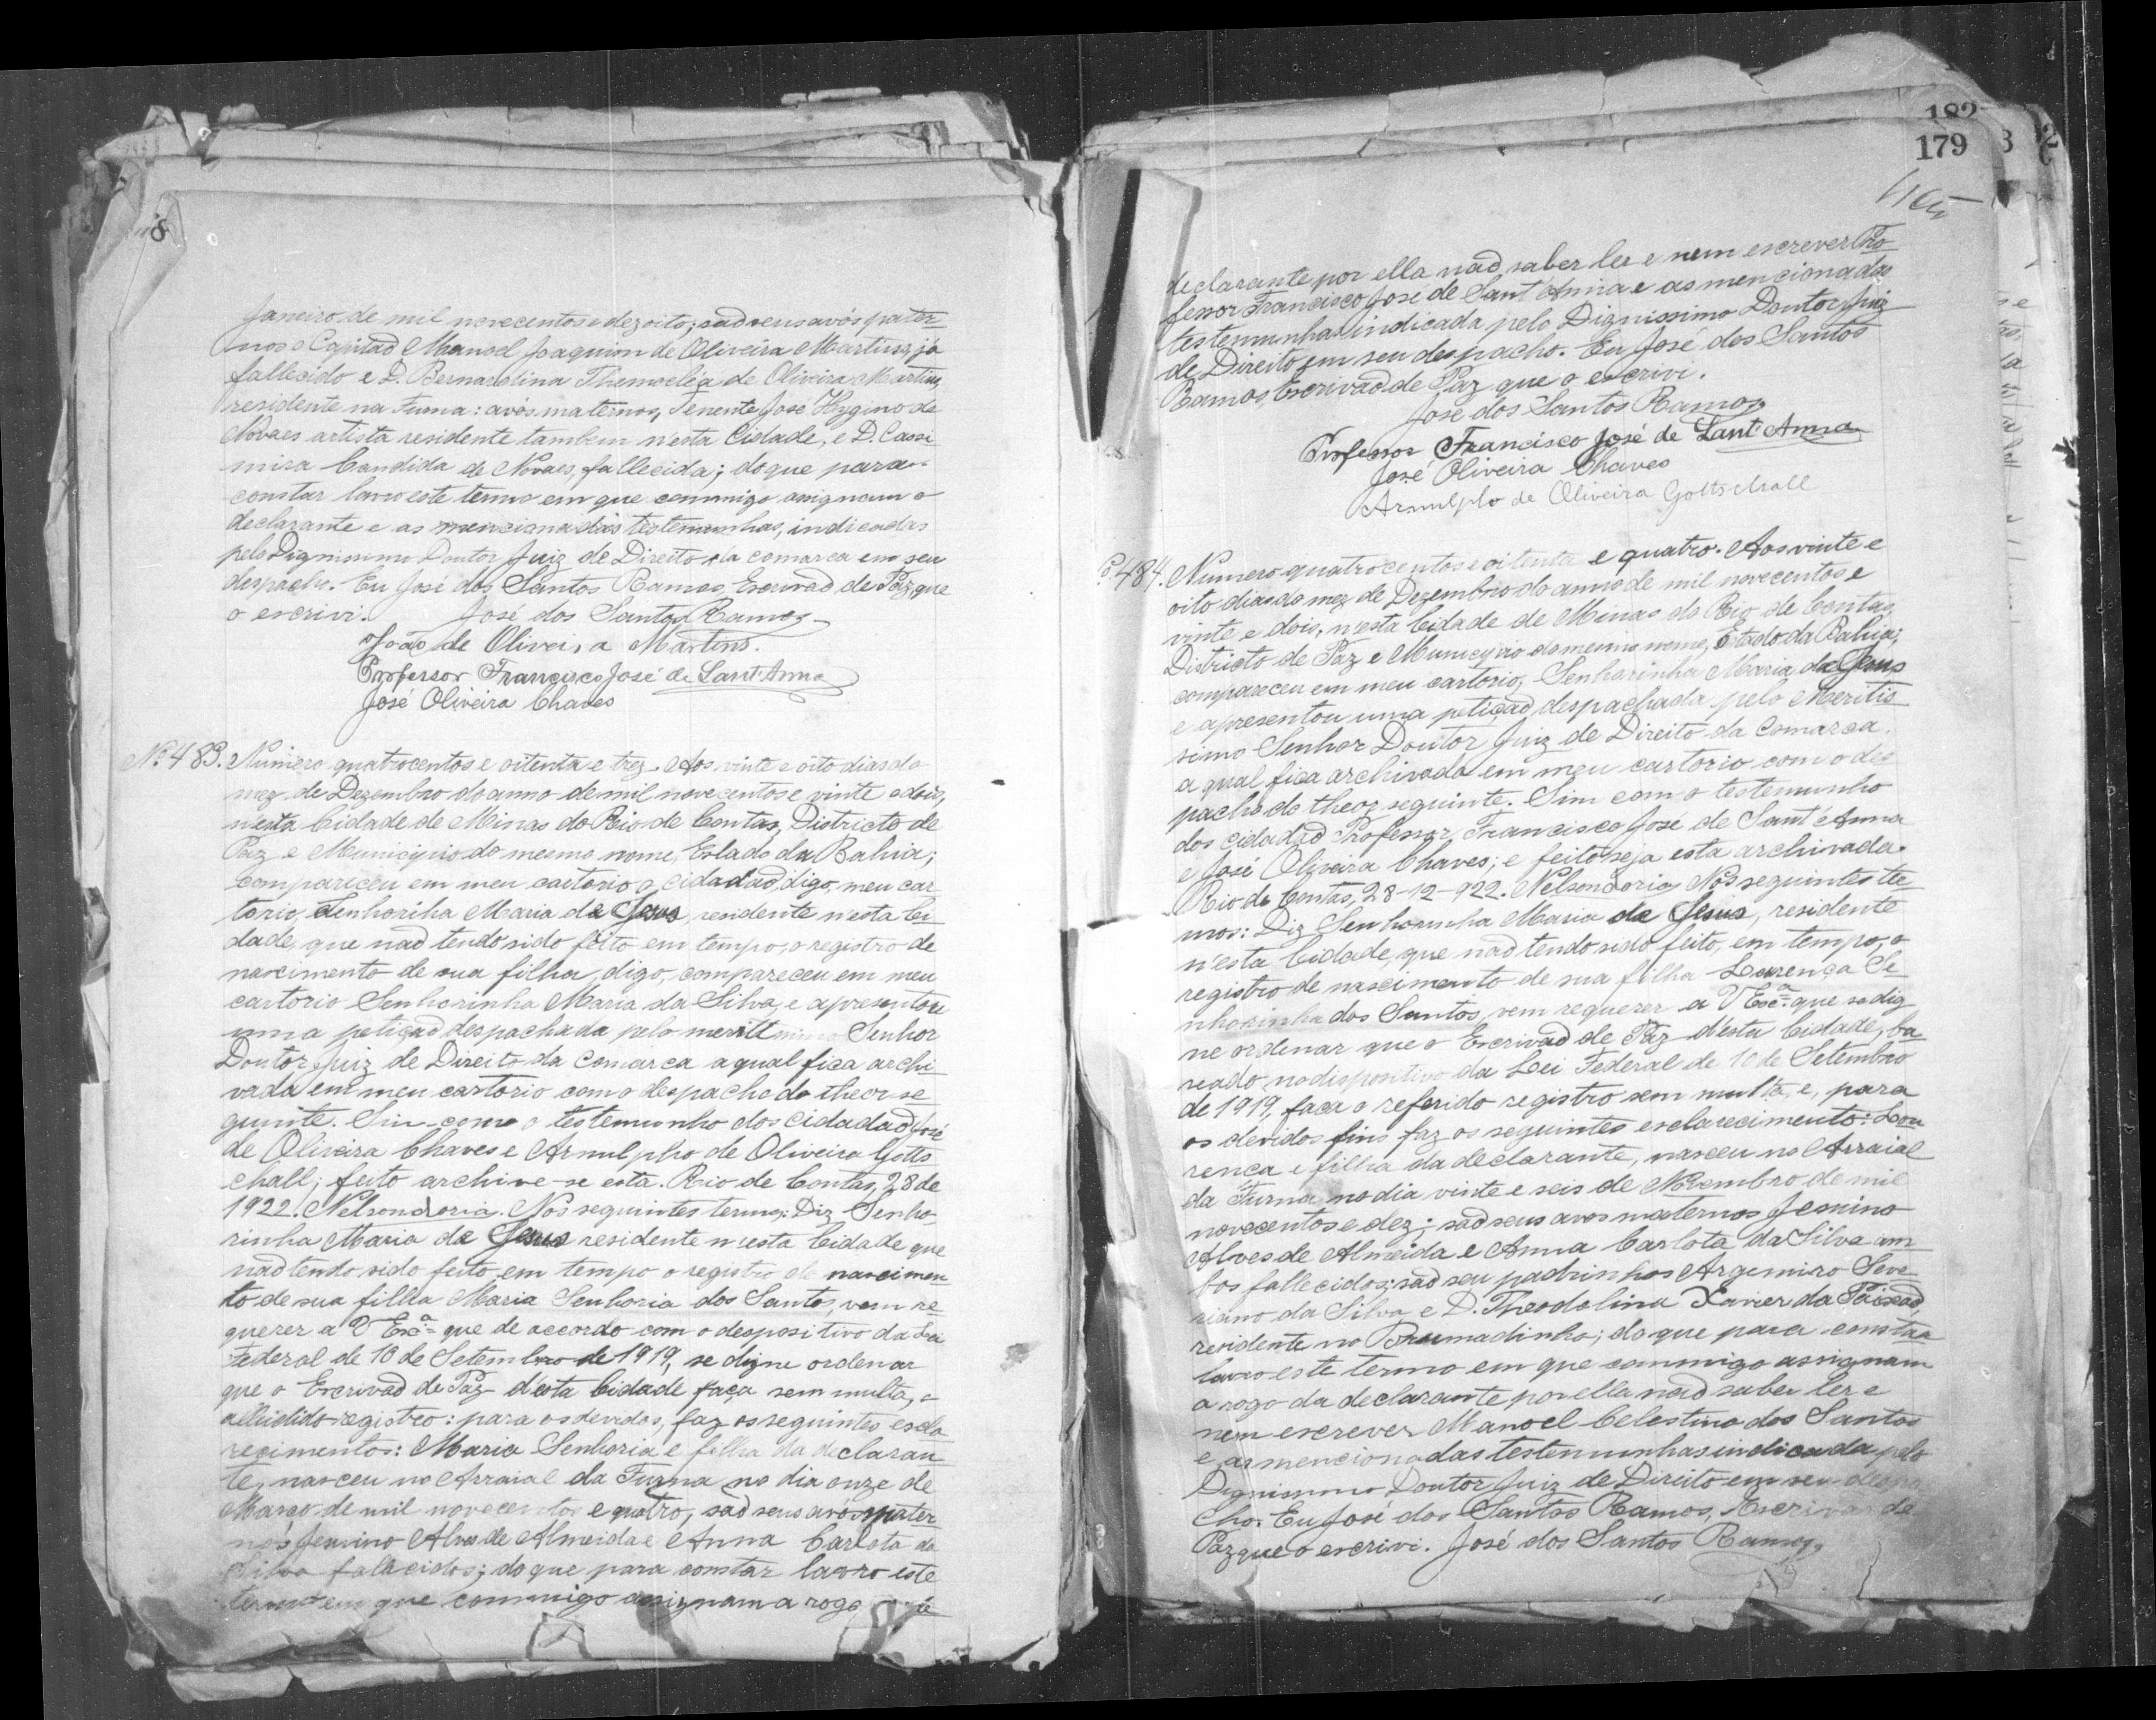 Janeiro de mil novecentos e dezoito; saõ seus avós pater
nos o Capitaõ Manoel Joaquim de Oliveira Martins, já
fallecido e D. Bernardina Themocléa de Oliveira Martins,
residente na Furna: avós maternos, Tenente José Hygino de
Novaes artista residente tambem n'esta Cidade, e D. Cassi
mira Candida de Novaes, fallecida; do que para
constar lavro este termo em que commigo assignam o
declarante e as mencionadas testemunhas, indicadas
pelo Dignissimo Doutor Juiz de Direito da comarca em seu
despacho. Eu José dos Santos Ramos, Escrivaõ de Paz que
o escrivi. José dos Santos Ramos
João de Oliveira Martins.
Professor Francisco José de Sant'Anna
José Oliveira Chaves
Nº 483. Número quatrocentos e oitenta e trez. Aos vinte e oito dias do
mez de Dezembro do anno de mil novecentos e vinte e dois,
n'esta Cidade de Minas do Rio de Contas, Districto de
Paz e Municipio do mesmo nome, Estado da Bahia;
compareceu em meu cartorio o cidadaõ, digo, meu car
torio, Senhorinha Maria de Jesus, residente n'esta Ci
dade, que naõ tendo sido feito em tempo, o registro de
nascimento de sua filha, digo, compareceu em meu
cartorio Senhorinha Maria da Silva, e apresentou
uma petiçaõ despachada pelo merit Senhor
Doutor Juiz de Direito da Comarca a qual fica archi
vada em meu cartorio com o despacho do theor se
guinte. Sim como o testemunho dos cidadaõ José
de Oliveira Chaves e Arnulpho de Oliveira Gotts
chall; feito archive-se esta. Rio de Contas, 28 de
1922. Nelsondoria. Nos seguintes termos: Diz Senho
rinha Maria de Jesus residente n'esta Cidade que
naõ tendo sido feito em tempo o registro de nascimen
to de sua filha Maria Senhoria dos Santos, vem re
querer a V Excª que de accordo com o despositivo da Lei
Federal de 10 de Setembro de 1919, se digne ordenar
que o Escrivaõ de Paz d'esta Cidade faça sem multa, o
alludido registro: para os devidos, faz os seguintes escla
recimentos: Maria Senhoria é filha da declaran
te, nasceu no Arraial da Furna no dia onze de
Março de mil novecentos e quatro, saõ seus avós mater
nos Jesuino Alves de Almeida e Anna Carlota da
Silva fallecidos; do que para constar lavro este
termo em que commigo assignam a rogo
182
179
declarante por ella naõ saber ler e nem escrever Pro
fessor Francisco José de Sant'Anna e as mencionadas
testemunhas indicada pelo Dignissimo Doutor Juiz
de Direito em seu despacho. Eu José dos Santos
Ramos, Escrivaõ de Paz que o escrivi.
José dos Santos Ramos
Professor Francisco José de Sant'Anna
José Oliveira Chaves
Arnulpho de Oliveira Gottschall
484. Número quatrocentos e oitenta e quatro. Aos vinte e
oito dias do mez de Dezembro do anno de mil novecentos e
vinte e dois, n'esta Cidade de Minas do Rio de Contas,
Districto de Paz e Municipio do mesmo nome, Estado da Bahia;
compareceu em meu cartorio, Senhorinha Maria de Jesus
e apresentou uma petiçaõ despachada pelo Meritis
simo Senhor Doutor Juiz de Direito da Comarca,
a qual fica archivada em meu cartorio com o des
pacho do theor seguinte. Sim com o testemunho
dos cidadaõ Professor, Francisco José de Sant'Anna
e José Oliveira Chaves; e feito seja esta archivada.
Rio de Contas, 28-12-922. Nelsondoria, Nos seguintes te
mos: Diz Senhorinha Maria de Jesus, residente
n'esta Cidade, que naõ tendo sido feito, em tempo, o
registro de nascimento de sua filha Lourença Se
nhorinha dos Santos, vem requerer a V Excª que se dig
ne ordenar que o Escrivaõ de Paz d'esta Cidade, ba
seado no dispositivo da Lei Federal de 10 de Setembro
de 1919, faca o referido registro sem multa, e, para
os devidos fins faz os seguintes esclarecimento: Lou
rença é filha da declarante, nasceu no Arraial
da Furna no dia vinte e seis de Novembro de mil
novecentos e dez; saõ seus avos maternos Jesuino
Alves de Almeida e Anna Carlota da Silva am
bos fallecidos; saõ seu padrinhos Argemiro Seve
riano da Silva e D. Theodolina Xavier da Paixaõ,
residente no Brumadinho; do que para constar
lavro este termo em que commigo assignam
a rogo da declarante, por ella naõ saber ler e
nem escrever Manoel Celestino dos Santos
e, as mencionadas testemunhas indicada pelo
Dignissimo Doutor Juiz de Direito em seu despa
cho. Eu José dos Santos Ramos, Escrivaõ de
Paz que o escrivi. José dos Santos Ramos.